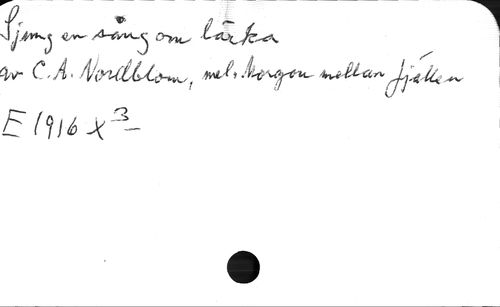 Sjung en sång om lärka
av C.A. Nordblom, mel. Morgon mellan fjällen
E 1916 x 3